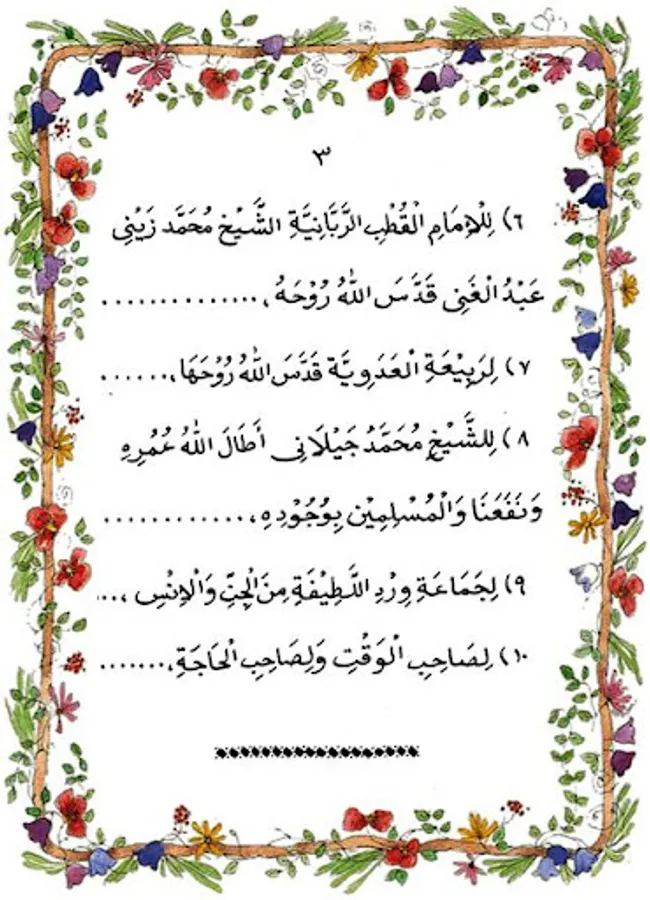 ٣
٦) لِلْإِمَامِ الْقُطْبِ الرَّبَّانِيَّةِ الشَّيْخ مُحَمَّد زَيْنِي
عَبْدُ الْغَنِي قَدَّسَ اللهُ رُوْحَهُ، ..............
٧) لِرَبِيْعَةِ الْعَدَوِيَّة قَدَّسَ اللهُ رُوْحَهَا، ......
٨) لِلشَّيْخِ مُحَمَّدْ جَيْلَانِي أَطَالَ اللهُ عُمُرِهِ
وَنَفَعَنَا وَالْمُسْلِمِيْن بِوُجُوْدِهِ، ............
٩) لِجَمَاعَةِ وِرْدِ اللَّطِيْفَةِ مِنَ الْجِنِّ وَالْاِنْسِ ، ...
١٠) لِصَاحِبِ الْوَقْتِ وَلِصَاحِبِ الْحَاجَةِ، .......